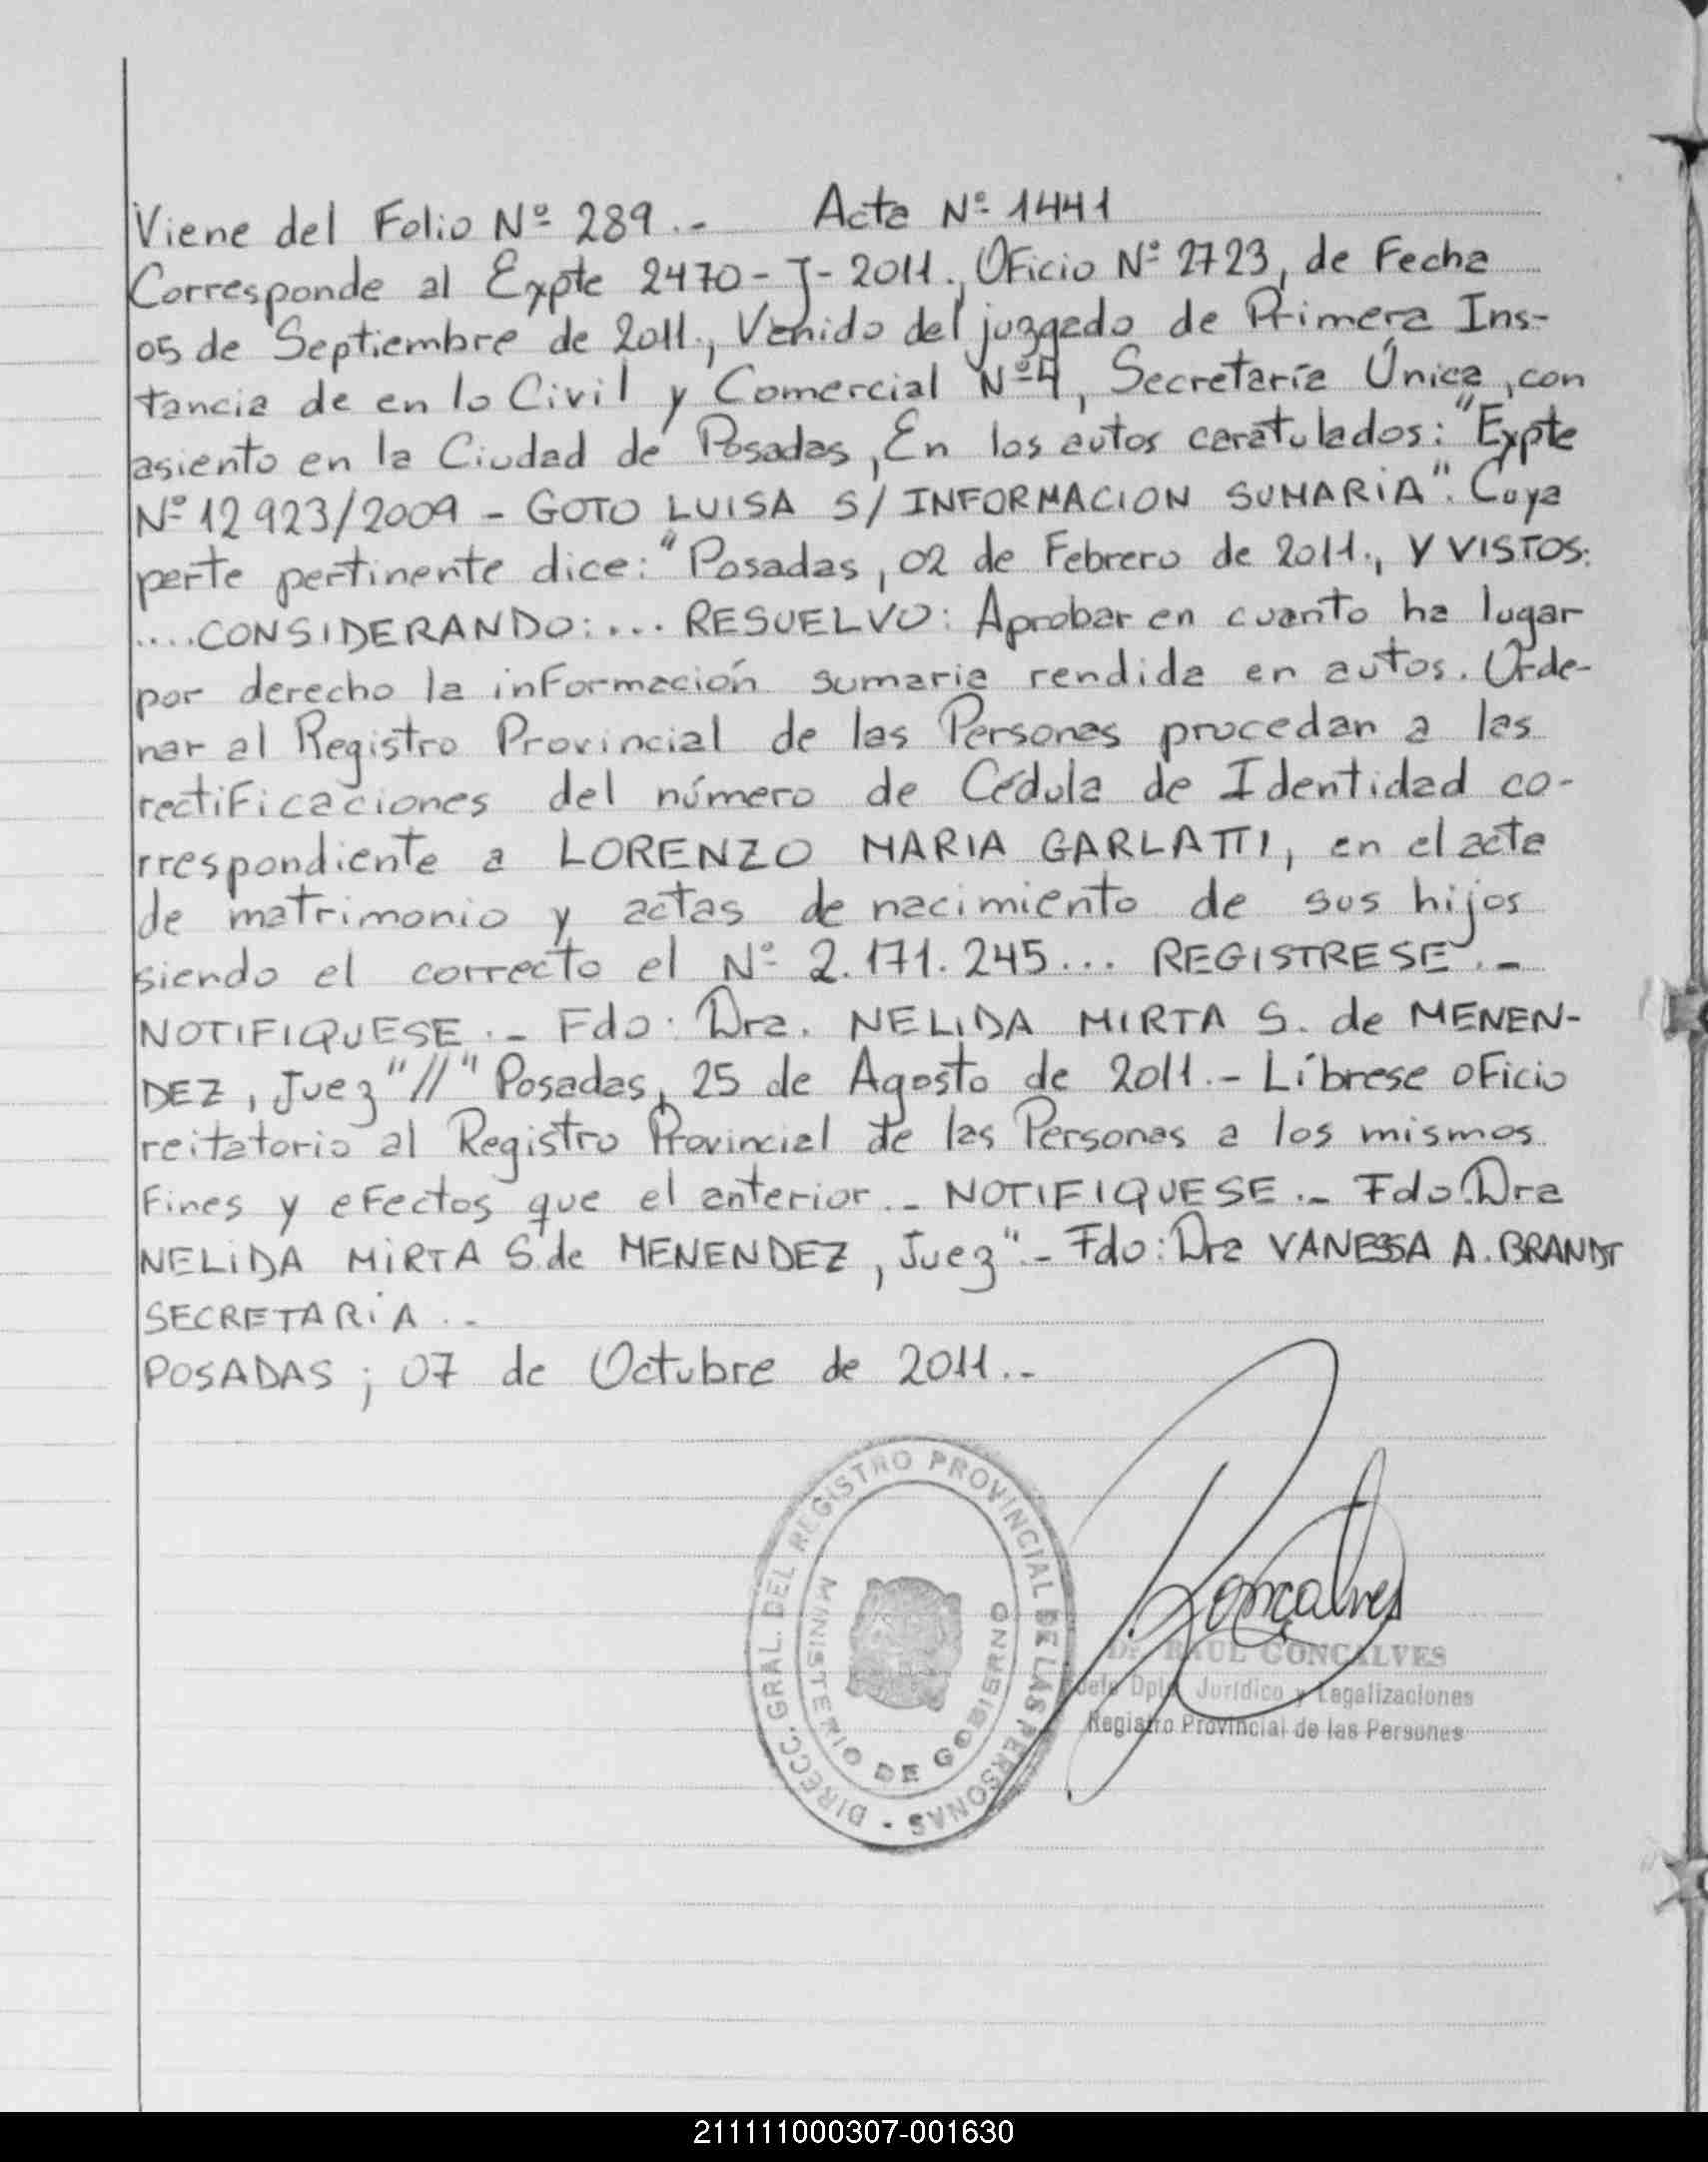 Viene del Folio Nº 289.- Acta Nº 1441
Corresponde al Expte 2470-J-2011., Oficio Nº 2723, de Fecha
05 de Septiembre de 2011., Venido del juzgado de Primera Ins-
tancia de en lo Civil y Comercial Nº4, Secretaría Única, con
asiento en la Ciudad de Posadas, En los autos caratulados: "Expte
Nº 12923/2009 - GOTO LUISA S/ INFORMACION SUMARIA". Cuya
parte pertinente dice: "Posadas, 02 de Febrero de 2011., Y VISTOS:
....CONSIDERANDO:... RESUELVO: Aprobar en cuanto ha lugar
por derecho la información sumaria rendida en autos. Orde-
nar al Registro Provincial de las Personas procedan a las
rectificaciones del número de Cédula de Identidad co-
rrespondiente a LORENZO MARIA GARLATTI, en el acta
de matrimonio y actas de nacimiento de sus hijos
siendo el correcto el Nº 2.171.245... REGISTRESE.-
NOTIFIQUESE.- Fdo: Dra. NELIDA MIRTA S. de MENEN-
DEZ, Juez"//" Posadas, 25 de Agosto de 2011.- Líbrese oficio
reitatorio al Registro Provincial de las Personas a los mismos
fines y efectos que el anterior.- NOTIFIQUESE.- Fdo: Dra
NELIDA MIRTA S. de MENENDEZ, Juez".- Fdo: Dra VANESSA A. BRANDT
SECRETARIA.-
POSADAS; 07 de Octubre de 2011.-
DIRECC. GRAL. DEL REGISTRO PROVINCIAL DE LAS PERSONAS -
MINISTERIO DE GOBIERNO
Gonçalves
Dr. RAUL GONCALVES
Jefe Dpto. Jurídico y Legalizaciones
Registro Provincial de las Personas
211111000307-001630